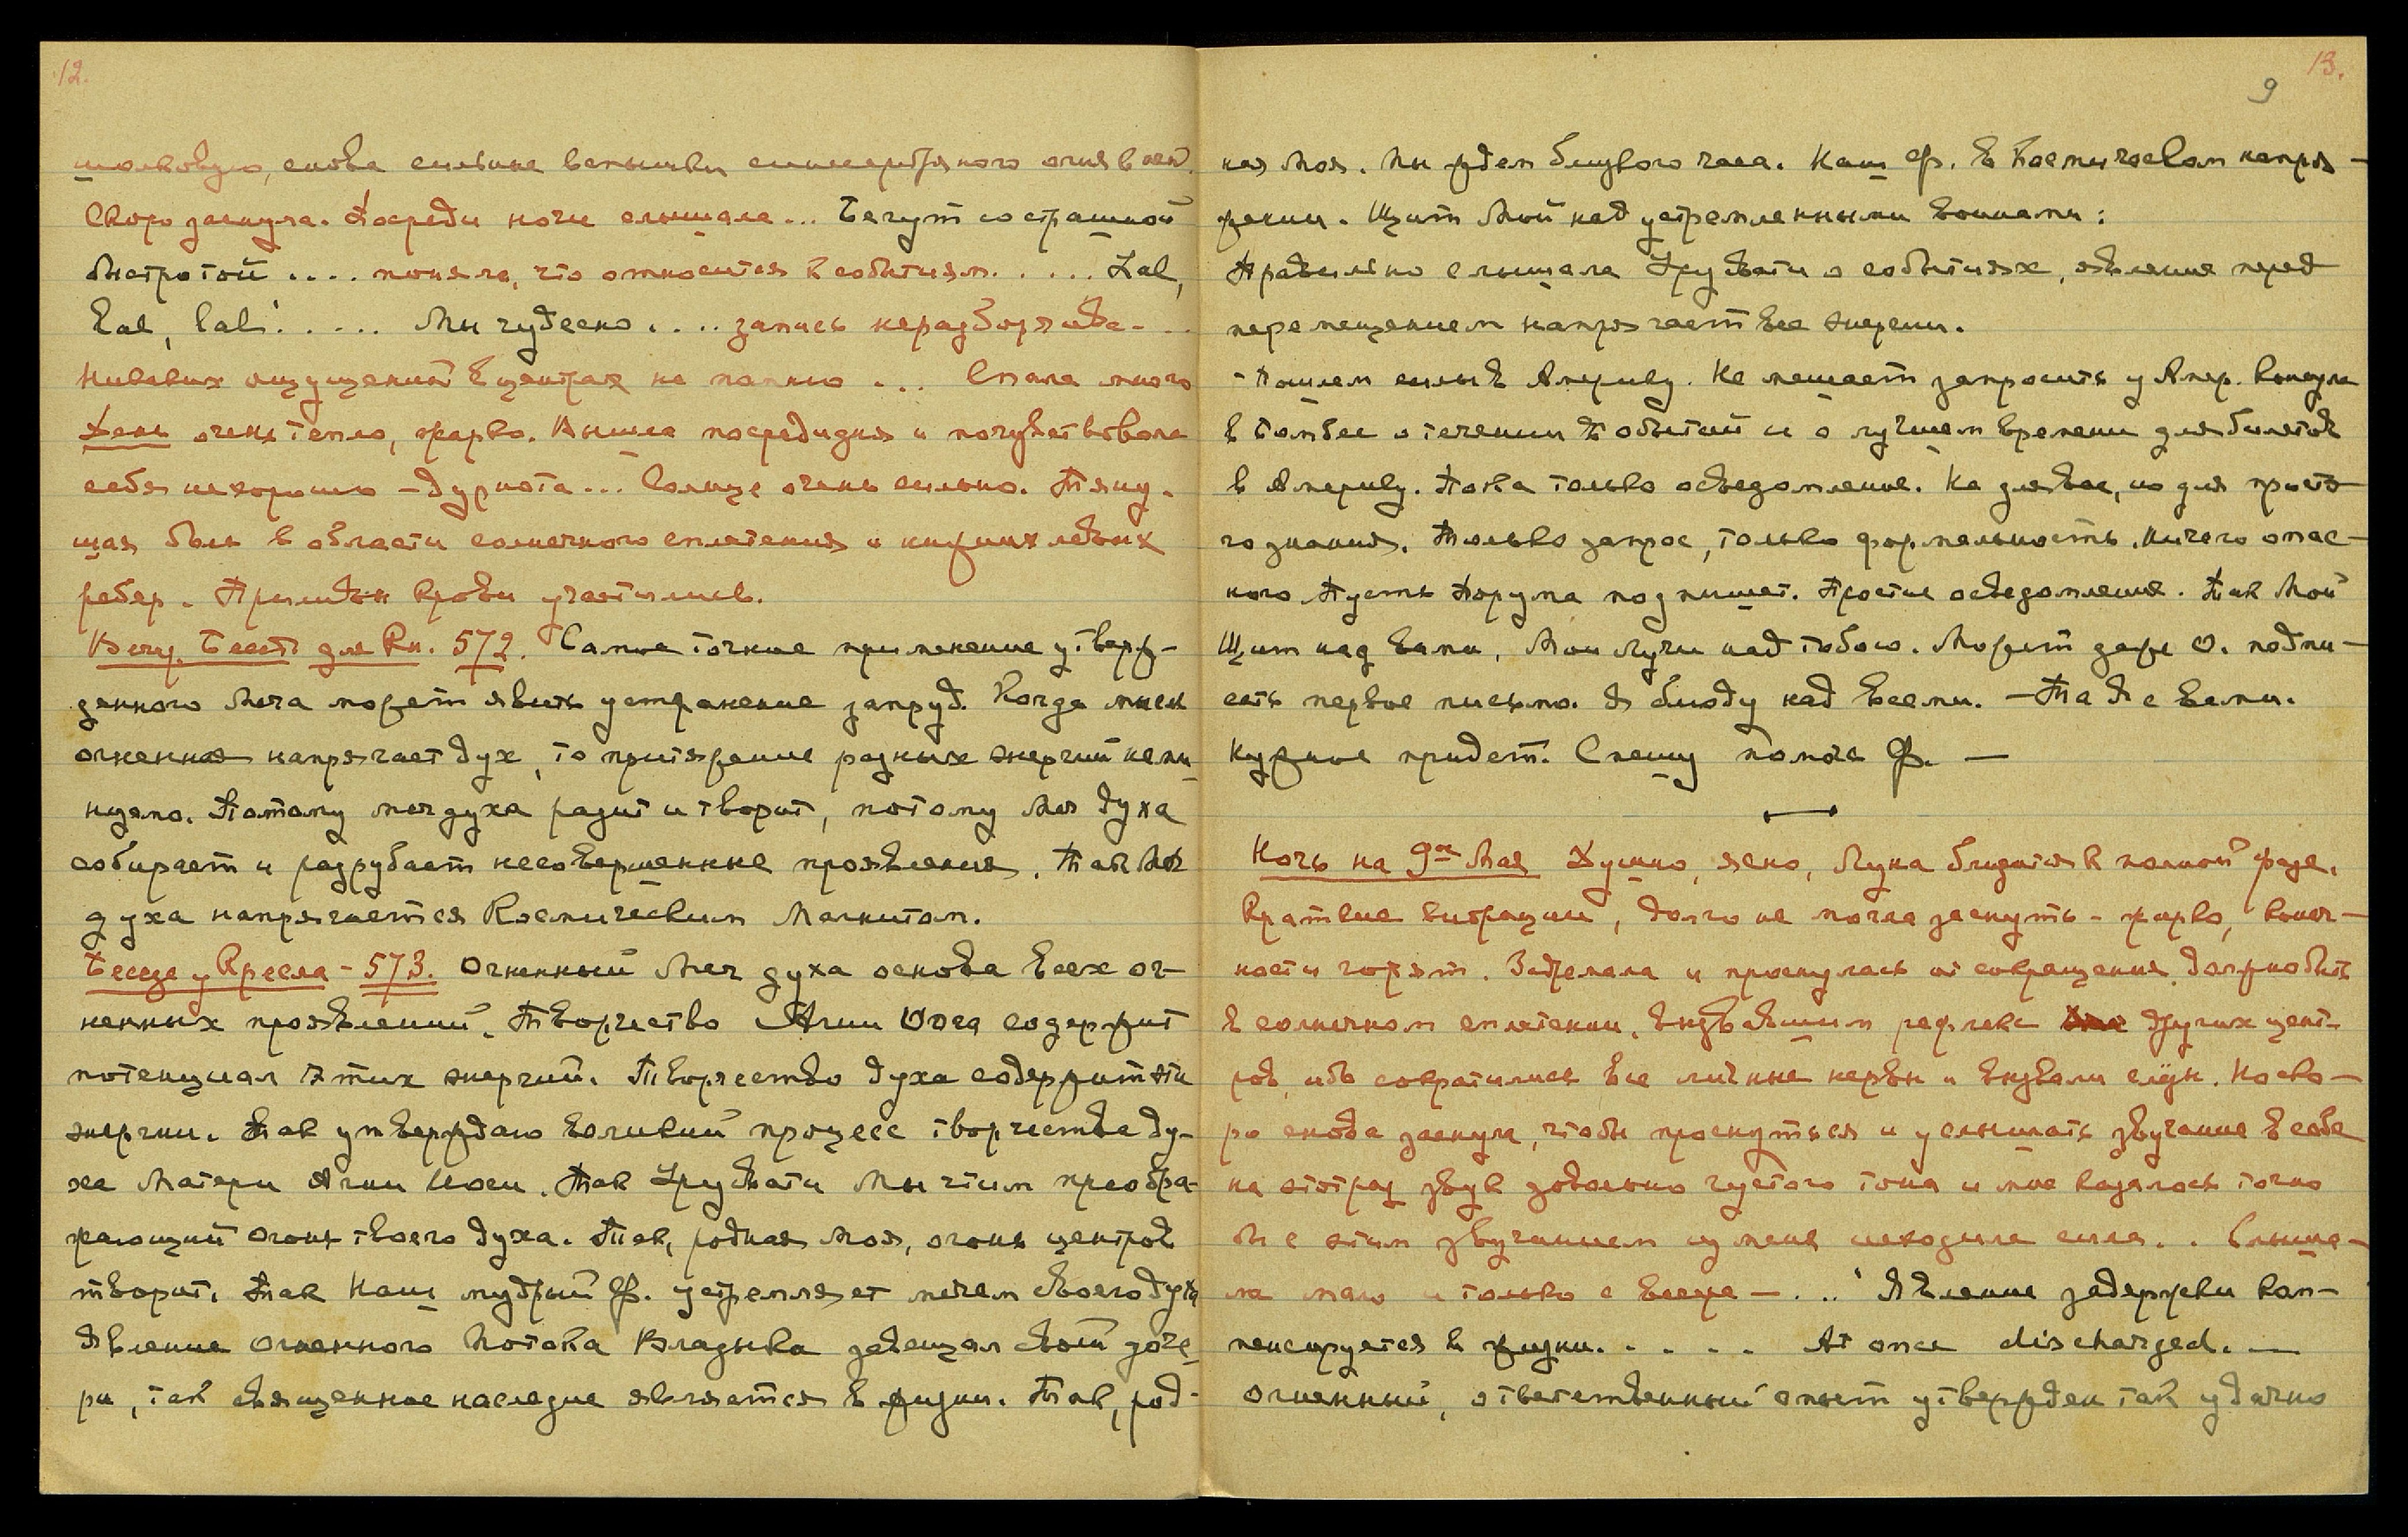 12.
шолковую, снова сильные вспышки синесеребряного огня в ней.
Скоро заснула. Посреди ночи слышала... Бегут со страшной
быстротой .... поняла, что относится к событиям..... Lal,
Lal, Lal..... Мы чудесно.... запись неразборчива...
Никаких ощущений в центрах не помню ... Спала много
День очень тепло, жарко. Вышла посреди дня и почувствовала
себя нехорошо – дурнота... Солнце очень сильно. Тяну-
щая боль в области солнечного сплетения и нижних левых
ребер. Приливы крови участились.
Вечер. Бесед. для Кн. 572. Самое точное применение утверж-
денного Меча может явить устранение запруд. Когда мысль
огненная напрягает дух, то притяжение разных энергий неми-
нуемо. Потому меч духа разит и творит, потому Меч духа
собирает и разрубает несовершенные проявления. Так Меч
духа напрягается Космическим Магнитом.
Беседа у Кресла – 573. Огненный Меч духа основа всех ог-
ненных проявлений. Творчество Агни Йога содержит
потенциал этих энергий. Творчество духа содержит эти
энергии. Так утверждаю великий процесс творчества ду-
ха Матери Агни Йоги. Так Урусвати Мы чтим преобра-
жающий огонь твоего духа. Так, родная Моя, огонь центров
творит. Так Наш мудрый Ф. устремляет мечем своего духа
Явление огненного Потока Владыка завещал своей доче-
ри, так священное наследие является в жизни. Так, род-
13.
9
ная Моя. Мы ждем близкого часа. Наш Ф. в Космическом напря-
жении. Щит Мой над устремленными воинами:
Правильно слышала Урусвати о событиях, явление перед
перемещением напрягает все энергии.
– Пошлем силы в Америку. Не мешает запросить у Амер. Консула
в Бомбее о течении событий и о лучшем времени для билетов
в Америку. Пока только осведомление. Не для вас, но для просто-
го знания. Только запрос, только формальность, ничего опас-
ного. Пусть Порума подпишет. Простые осведомления. Так Мой
Щит над вами, Мои Лучи над тобою. Может даже О. подпи-
сать первое письмо. Я блюду над всеми. – Так Я с вами.
Нужное придет. Спешу помочь Ф. –
Ночь на 9ое Мая Душно, ясно, Луна близится к полной фазе.
Краткие вибрации, долго не могла заснуть – жарко, конеч-
ности горят. Задремала и проснулась от сокращения, должно быть
в солнечном сплетении, вызвавшим рефлекс других цент-
ров, ибо сократились все личные нервы и вызвали слезы. Но ско-
ро снова заснула, чтобы проснуться и услышать звучание в себе
на этот раз звук довольно густого тона и мне казалось точно
бы с этим звучанием из меня исходила сила.. Слыша-
ла мало и только с вечера – ... Явление задержки ком-
пенсируется в жизни..... At once discharged. –
Огненный, ответственный опыт утвержден так удачно